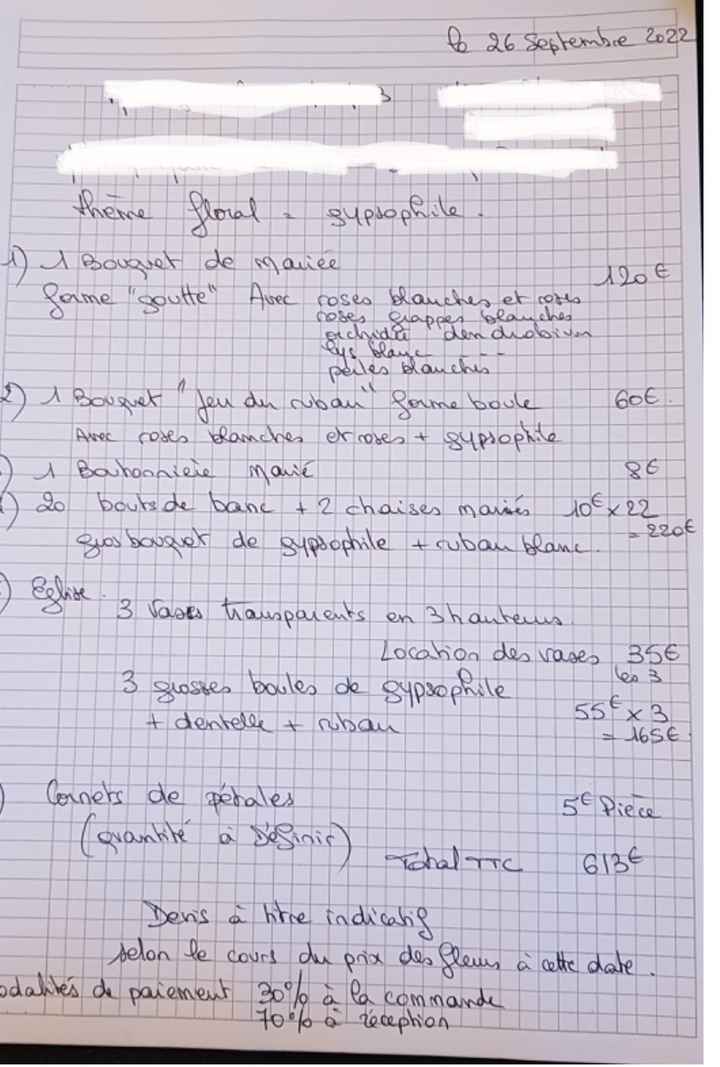 le 26 Septembre 2022
thème floral = gypsophile.
1) 1 Bouquet de mariée
120€
forme "goutte" Avec roses blanches et roses
roses grappes blanches
orchidée dendrobium
lys blanc ---
perles blanches
2) 1 Bouquet "jeu du ruban" forme boule 60€.
Avec roses blanches et roses + gypsophile
) 1 Boutonnière marié 8€
) 20 bouts de banc + 2 chaises mariés 10€ x 22
= 220€
gros bouquet de gypsophile + ruban blanc.
) Eglise.
3 vases transparents en 3 hauteurs
Location des vases 35€
les 3
3 grosses boules de gypsophile
55€ x 3
+ dentelle + ruban
= 165€
) Cornets de pétales
5€ Pièce
(quantité à Définir)
Total TTC 613€
Devis à titre indicatif
selon le cours du prix des fleurs à cette date.
odalités de paiement 30% à la commande
70% à réception